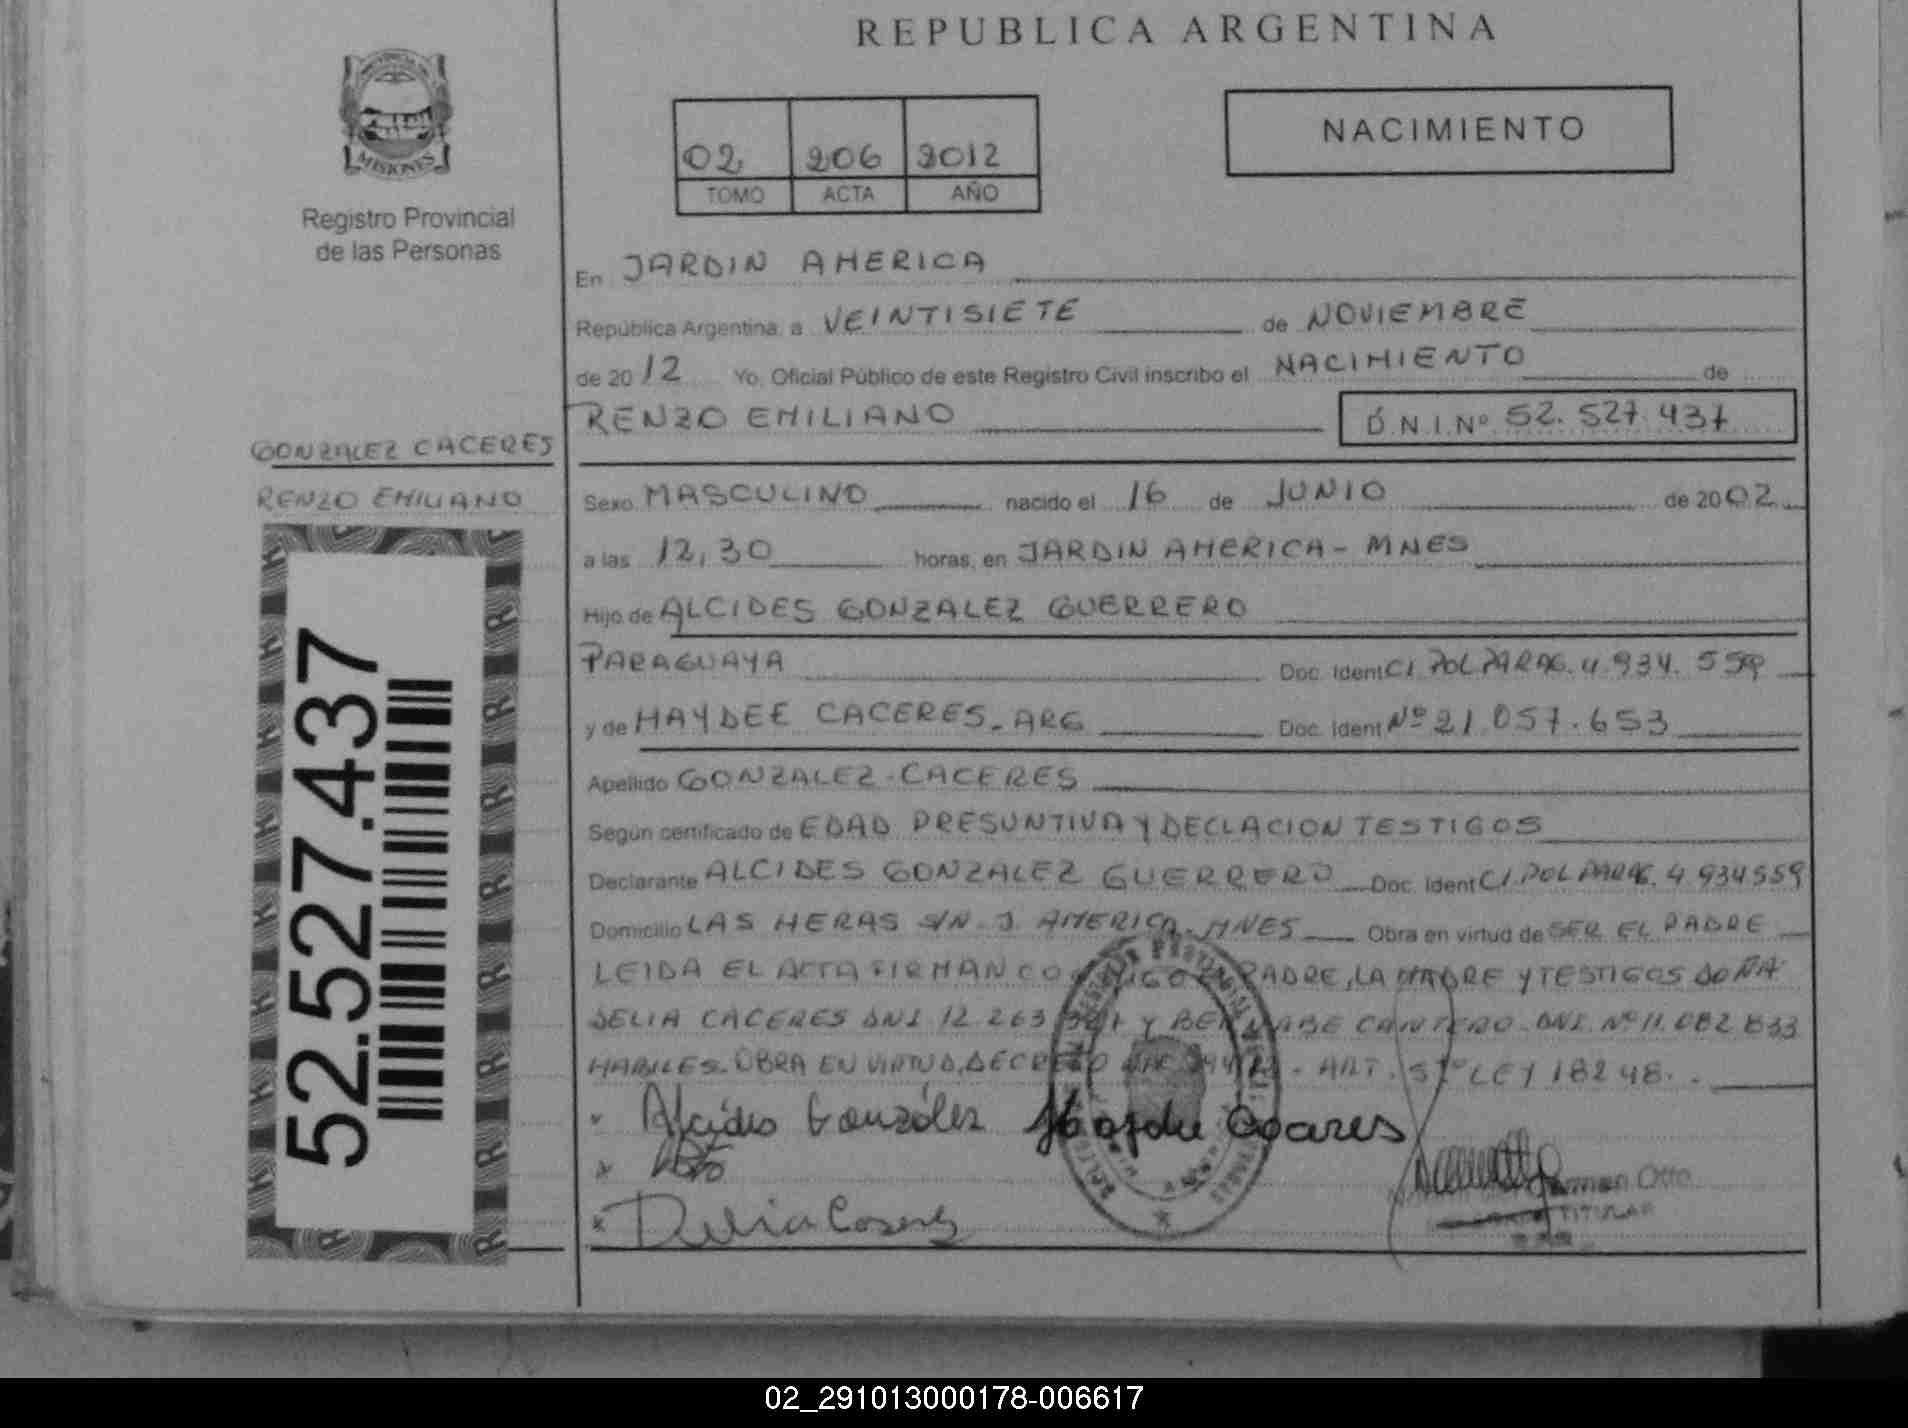 REPUBLICA ARGENTINA
PROVINCIA DE
MISIONES
Registro Provincial
de las Personas
02 206 2012
TOMO ACTA AÑO
NACIMIENTO
En JARDIN AMERICA
República Argentina, a VEINTISIETE de NOVIEMBRE
de 2012 Yo, Oficial Público de este Registro Civil inscribo el NACIMIENTO de
RENZO EMILIANO D.N.I.Nº 52.527.437
GONZALEZ CACERES
RENZO EMILIANO
52.527.437
Sexo MASCULINO nacido el 16 de JUNIO de 2002
a las 12,30 horas, en JARDIN AMERICA - MNES
Hijo de ALCIDES GONZALEZ GUERRERO
PARAGUAYA Doc. Ident CI. POL PARAG. 4.934.559
y de HAYDEE CACERES - ARG Doc. Ident Nº 21.057.653
Apellido GONZALEZ - CACERES
Según certificado de EDAD PRESUNTIVA Y DECLACION TESTIGOS
Declarante ALCIDES GONZALEZ GUERRERO Doc. Ident CI. POL PARAG. 4 934559
Domicilio LAS HERAS S/N - J. AMERICA - MNES Obra en virtud de SER EL PADRE
LEIDA EL ACTA FIRMAN PADRE, LA MADRE Y TESTIGOS DOÑA
DELIA CACERES DNI 12 263 Y BERNABE CANTERO - DNI Nº 11.082 833
HABILES. OBRA EN VIRTUD, DECRETO - ART. LEY 18248.
Alcides González Haydee Caceres
Delia Caceres
Otto
TITULAR
02_291013000178-006617